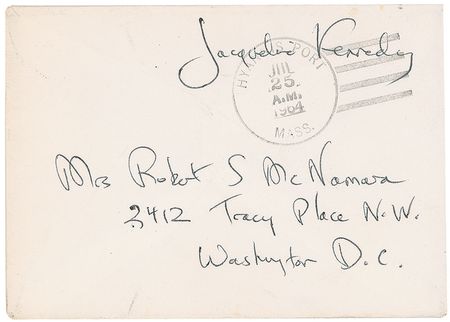 Jacqueline Kennedy
HYANNIS PORT
JUL
25
A.M.
1964
MASS.
Mrs Robert S McNamara
2412 Tracy Place N.W.
Washington D.C.